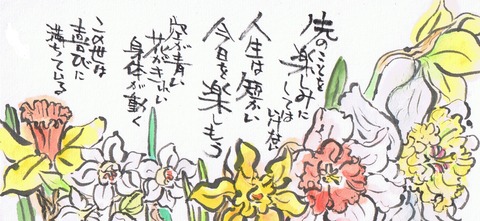 先のことを
楽しみに
しては
人生は短かい
今日を楽しもう
空が青い
花がきれい
身体が動く
この世は
喜びに
満ちている